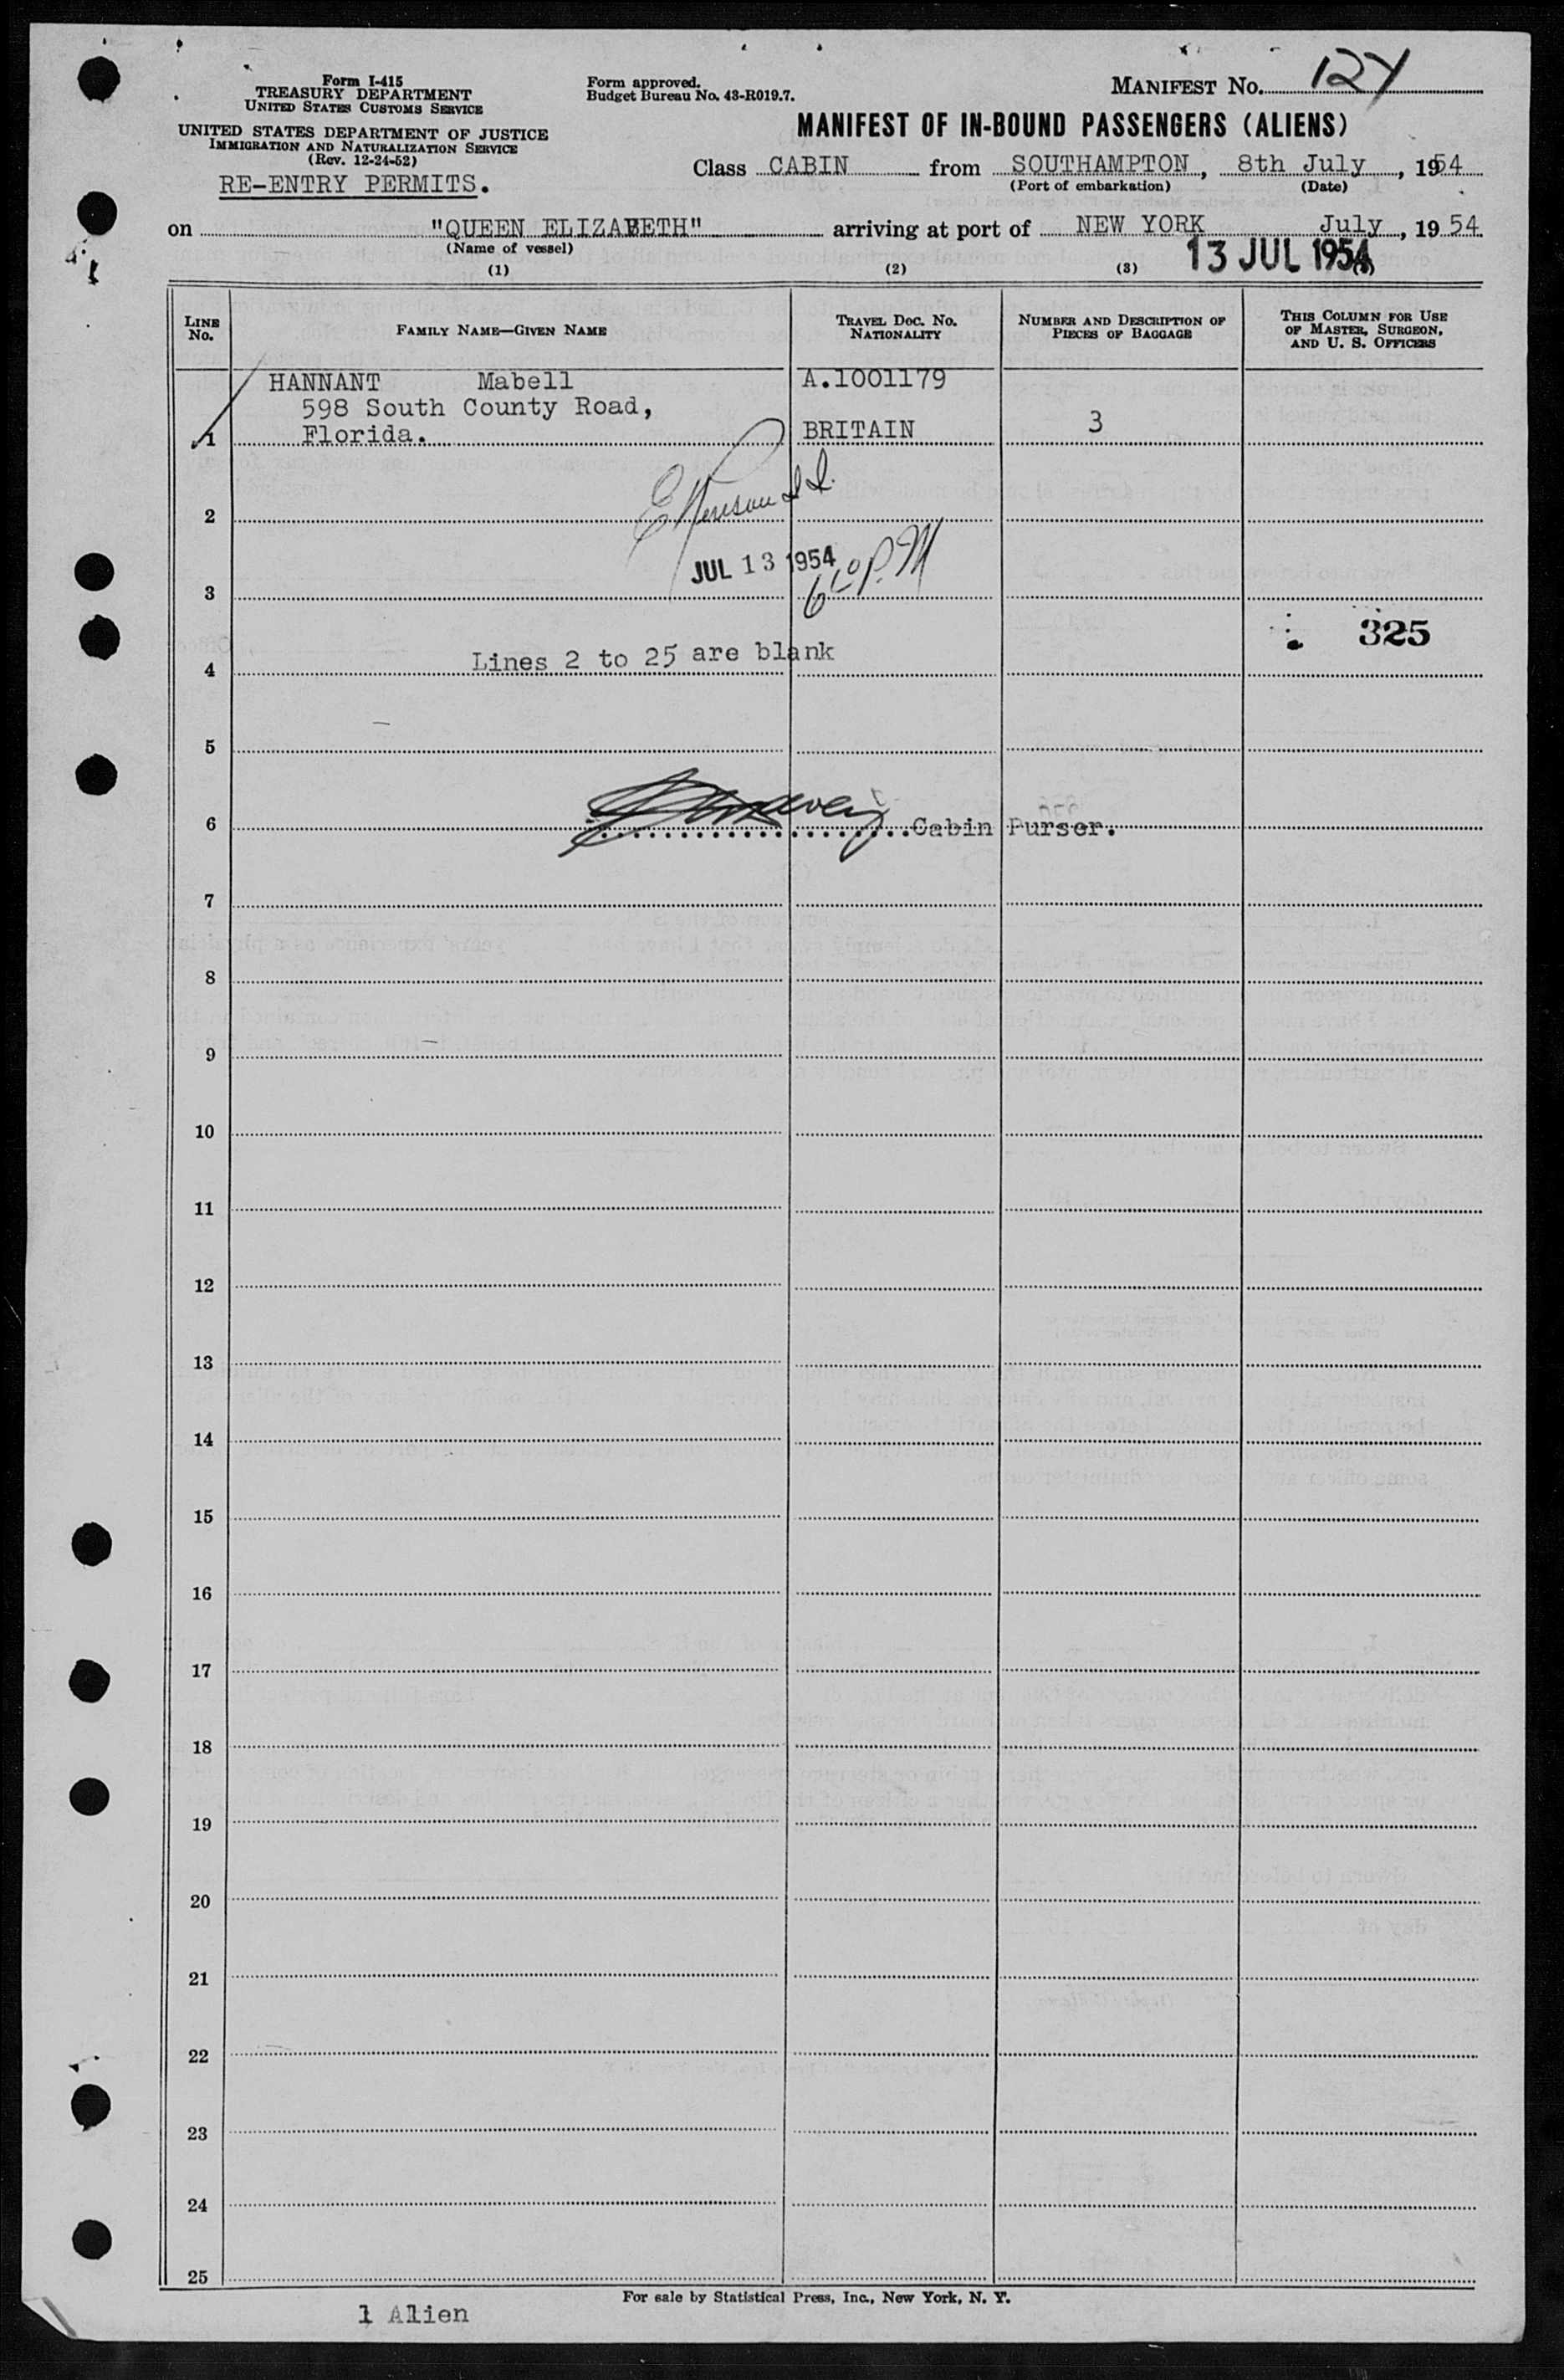 Form I-415
TREASURY DEPARTMENT
UNITED STATES CUSTOMS SERVICE
UNITED STATES DEPARTMENT OF JUSTICE
IMMIGRATION AND NATURALIZATION SERVICE
(Rev. 12-24-52)
RE-ENTRY PERMITS.
Form approved.
Budget Bureau No. 43-R019.7.
MANIFEST No. 124
MANIFEST OF IN-BOUND PASSENGERS (ALIENS)
Class CABIN from SOUTHAMPTON, 8th July, 1954
(Port of embarkation) (Date)
on "QUEEN ELIZABETH" arriving at port of NEW YORK July, 1954
(Name of vessel)
13 JUL 1954
(1) (2) (3)
LINE No. FAMILY NAME—GIVEN NAME TRAVEL DOC. No. NATIONALITY NUMBER AND DESCRIPTION OF PIECES OF BAGGAGE THIS COLUMN FOR USE OF MASTER, SURGEON, AND U. S. OFFICERS
HANNANT Mabell A.1001179
598 South County Road,
1 Florida. BRITAIN 3
2
JUL 13 1954
3
P.M
325
4 Lines 2 to 25 are blank
5
6 Cabin Purser.
7
8
9
10
11
12
13
14
15
16
17
18
19
20
21
22
23
24
25
For sale by Statistical Press, Inc., New York, N. Y.
1 Alien